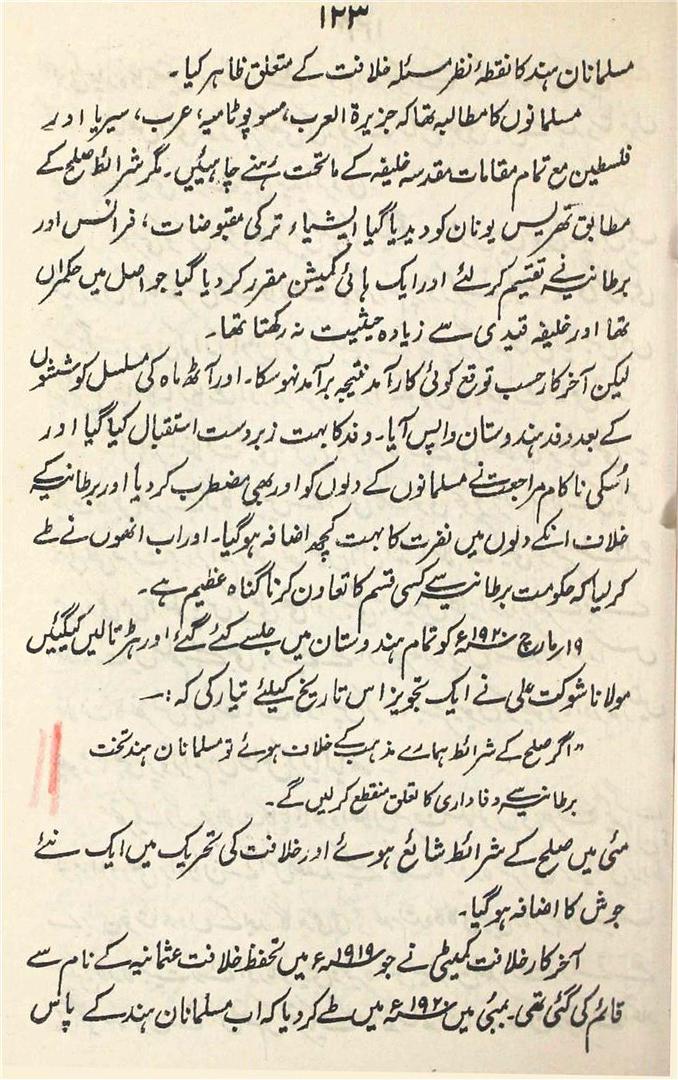 ۱۲۳
مسلمانان ہند کا نقطۂ نظر مسئلہ خلافت کے متعلق ظاہر کیا۔
مسلمانوں کا مطالبہ تھا کہ جزیرۃ العرب، مسوپوٹامیہ، عرب، سیریا اور
فلسطین مع تمام مقامات مقدسہ خلیفہ کے ماتحت رہنے چاہئیں۔ مگر شرائط صلح کے
مطابق تھریس یونان کو دیدیا گیا ایشیاء ترکی مقبوضات، فرانس اور
برطانیہ نے تقسیم کرلئے اور ایک ہائی کمیشن مقرر کردیا گیا جو اصل میں حکمراں
تھا اور خلیفہ قیدی سے زیادہ حیثیت نہ رکھتا تھا۔
لیکن آخرکار حسب توقع کوئی کارآمد نتیجہ برآمد نہوسکا۔ اور آٹھ ماہ کی مسلسل کوششوں
کے بعد وفد ہندوستان واپس آیا۔ وفد کا بہت زبردست استقبال کیا گیا اور
اُسکی ناکام مراجعت نے مسلمانوں کے دلوں کو اور بھی مضطرب کردیا اور برطانیہ کے
خلاف انکے دلوں میں نفرت کا بہت کچھ اضافہ ہوگیا۔ اور اب انھوں نے طے
کرلیا کہ حکومت برطانیہ سے کسی قسم کا تعاون کرنا گناہ عظیم ہے۔
۱۹ مارچ ۱۹۲۰ء کو تمام ہندوستان میں جلسے کئے گئے اور ہڑتالیں کیگئیں
مولانا شوکت علی نے ایک تجویز اس تاریخ کیلئے تیار کی کہ :—
"اگر صلح کے شرائط ہمارے مذہب کے خلاف ہوئے تو مسلمانان ہند تخت
برطانیہ سے وفاداری کا تعلق منقطع کرلیں گے۔
مئی میں صلح کے شرائط شائع ہوئے اور خلافت کی تحریک میں ایک نئے
جوش کا اضافہ ہوگیا۔
آخرکار خلافت کمیٹی نے جو ۱۹۱۹ء میں تحفظ خلافت عثمانیہ کے نام سے
قائم کی گئی تھی۔ بمبئی میں ۱۹۲۰ء میں طے کردیا کہ اب مسلمانان ہند کے پاس